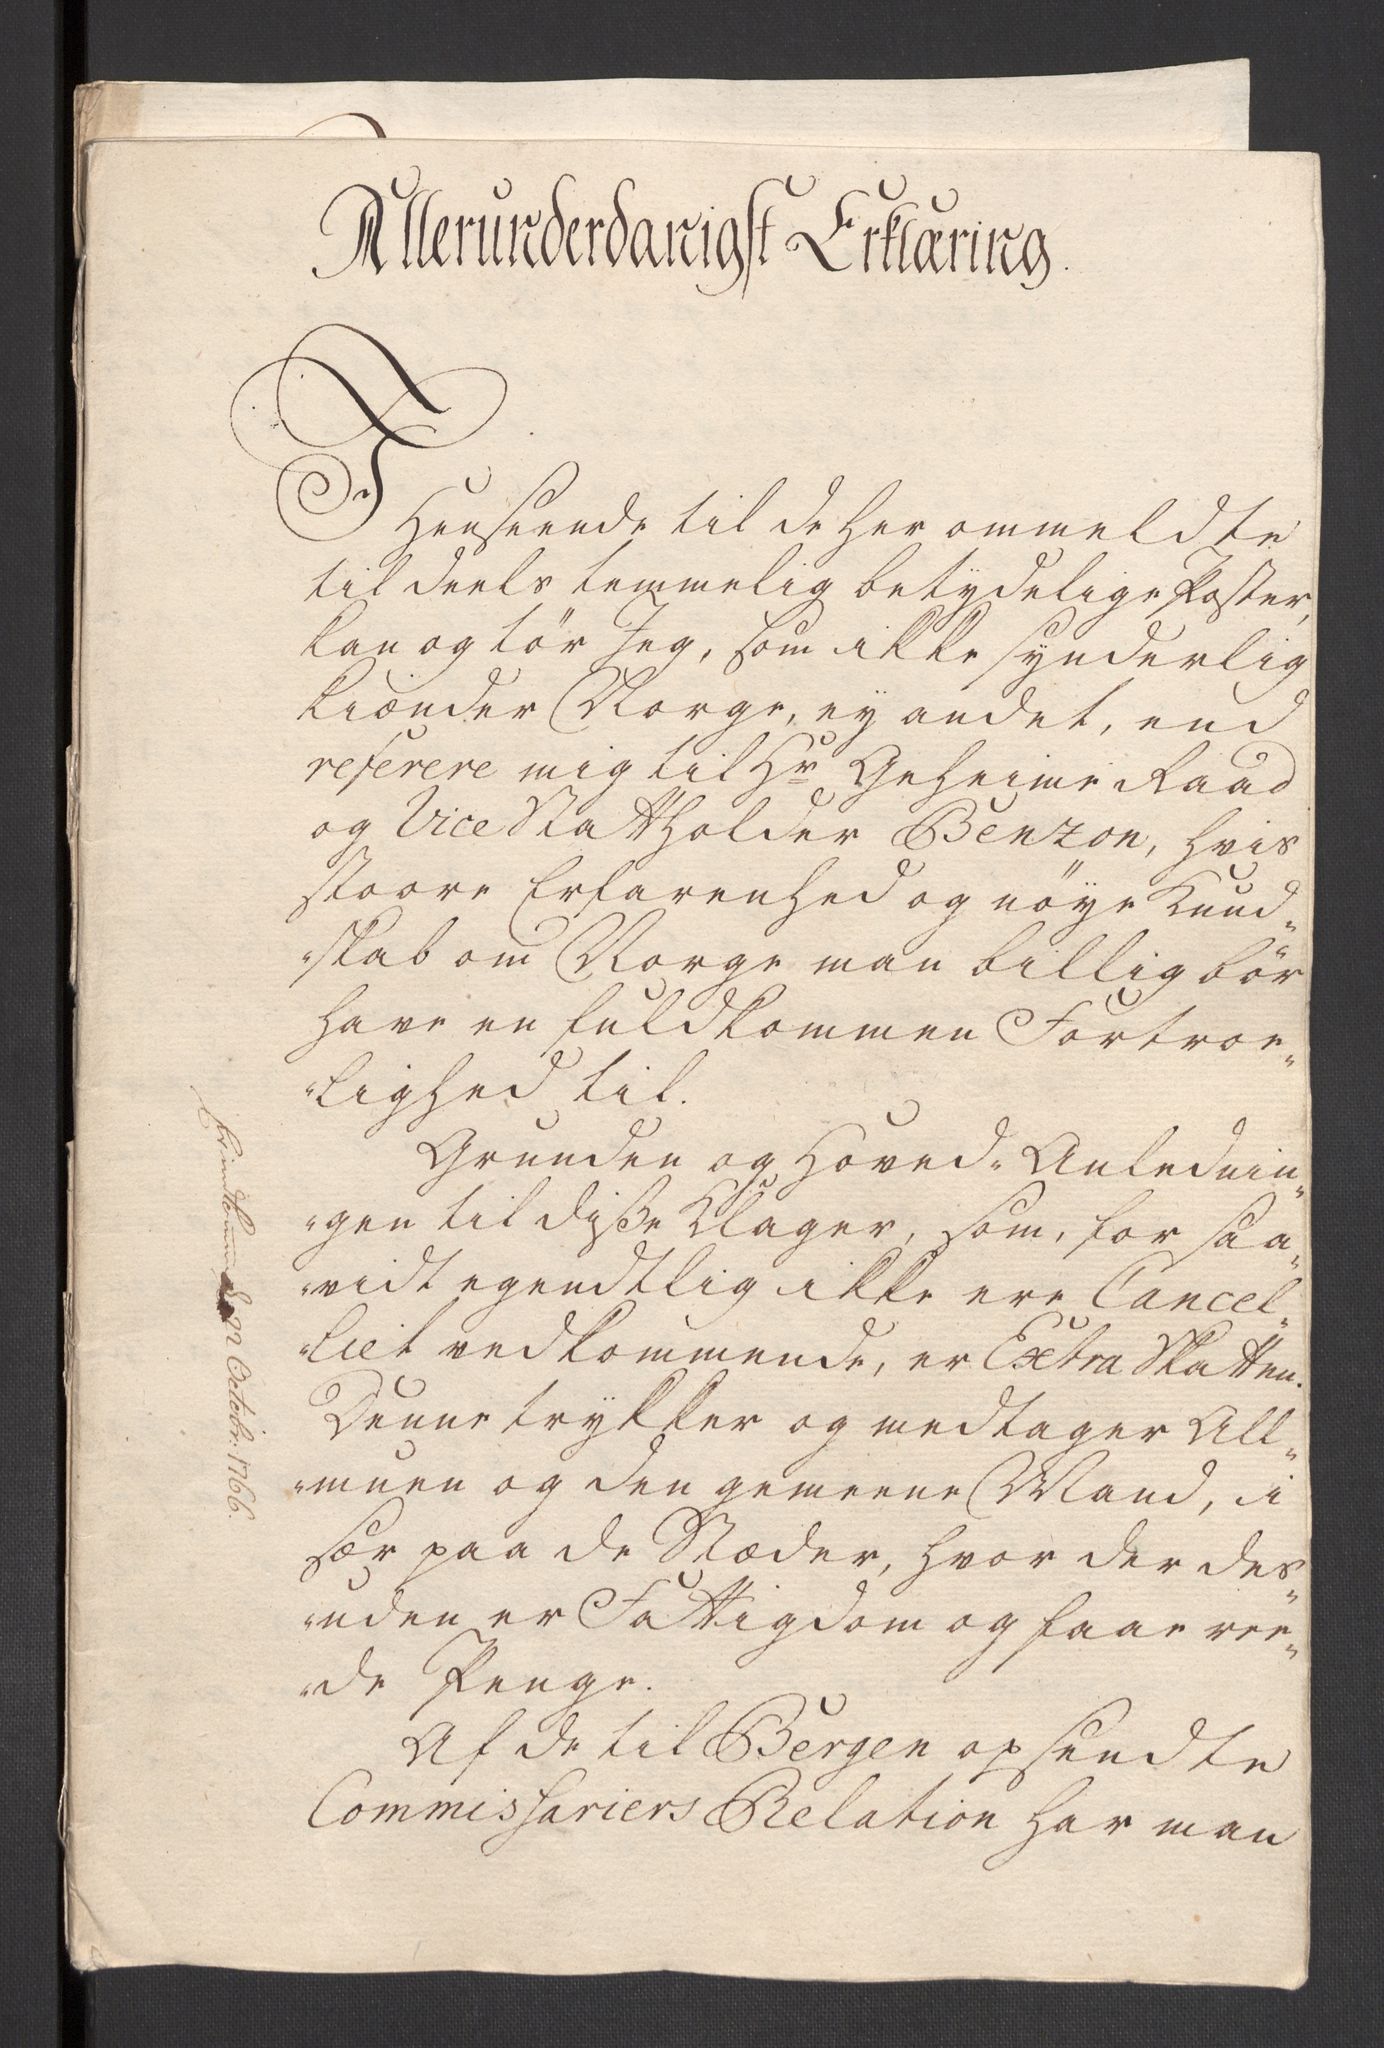 Allerunderdanigst Erklæring.
I
Henseende til de her ommeldte
til deels temmelig betydelige Poster,
kan og tör Jeg, som ikke synderlig
kiænder Norge, ey andet, end
referere mig til Hr Geheime Raad
og Vice Statholder Benzon, hvis
stoore Erfarenhed og nöye Kund-
-skab om Norge man billig bör
have en fuldkommen Fortroe-
-lighed til.
Grunden og Hoved-Anlednin-
-gen til disse Klager, som, for saa-
-vidt egendtlig ikke ere Cancel-
-liet vedkommende, er Extra Skatten.
Denne trykker og medtager All-
-muen og den gemeene Mand, i
sær paa de Stæder, hvor der des-
-uden er Fattigdom og faae ree-
-de Penge.
Af de til Bergen opsendte
Commissariers Relation har man
d. 22 Octobr: 1766.